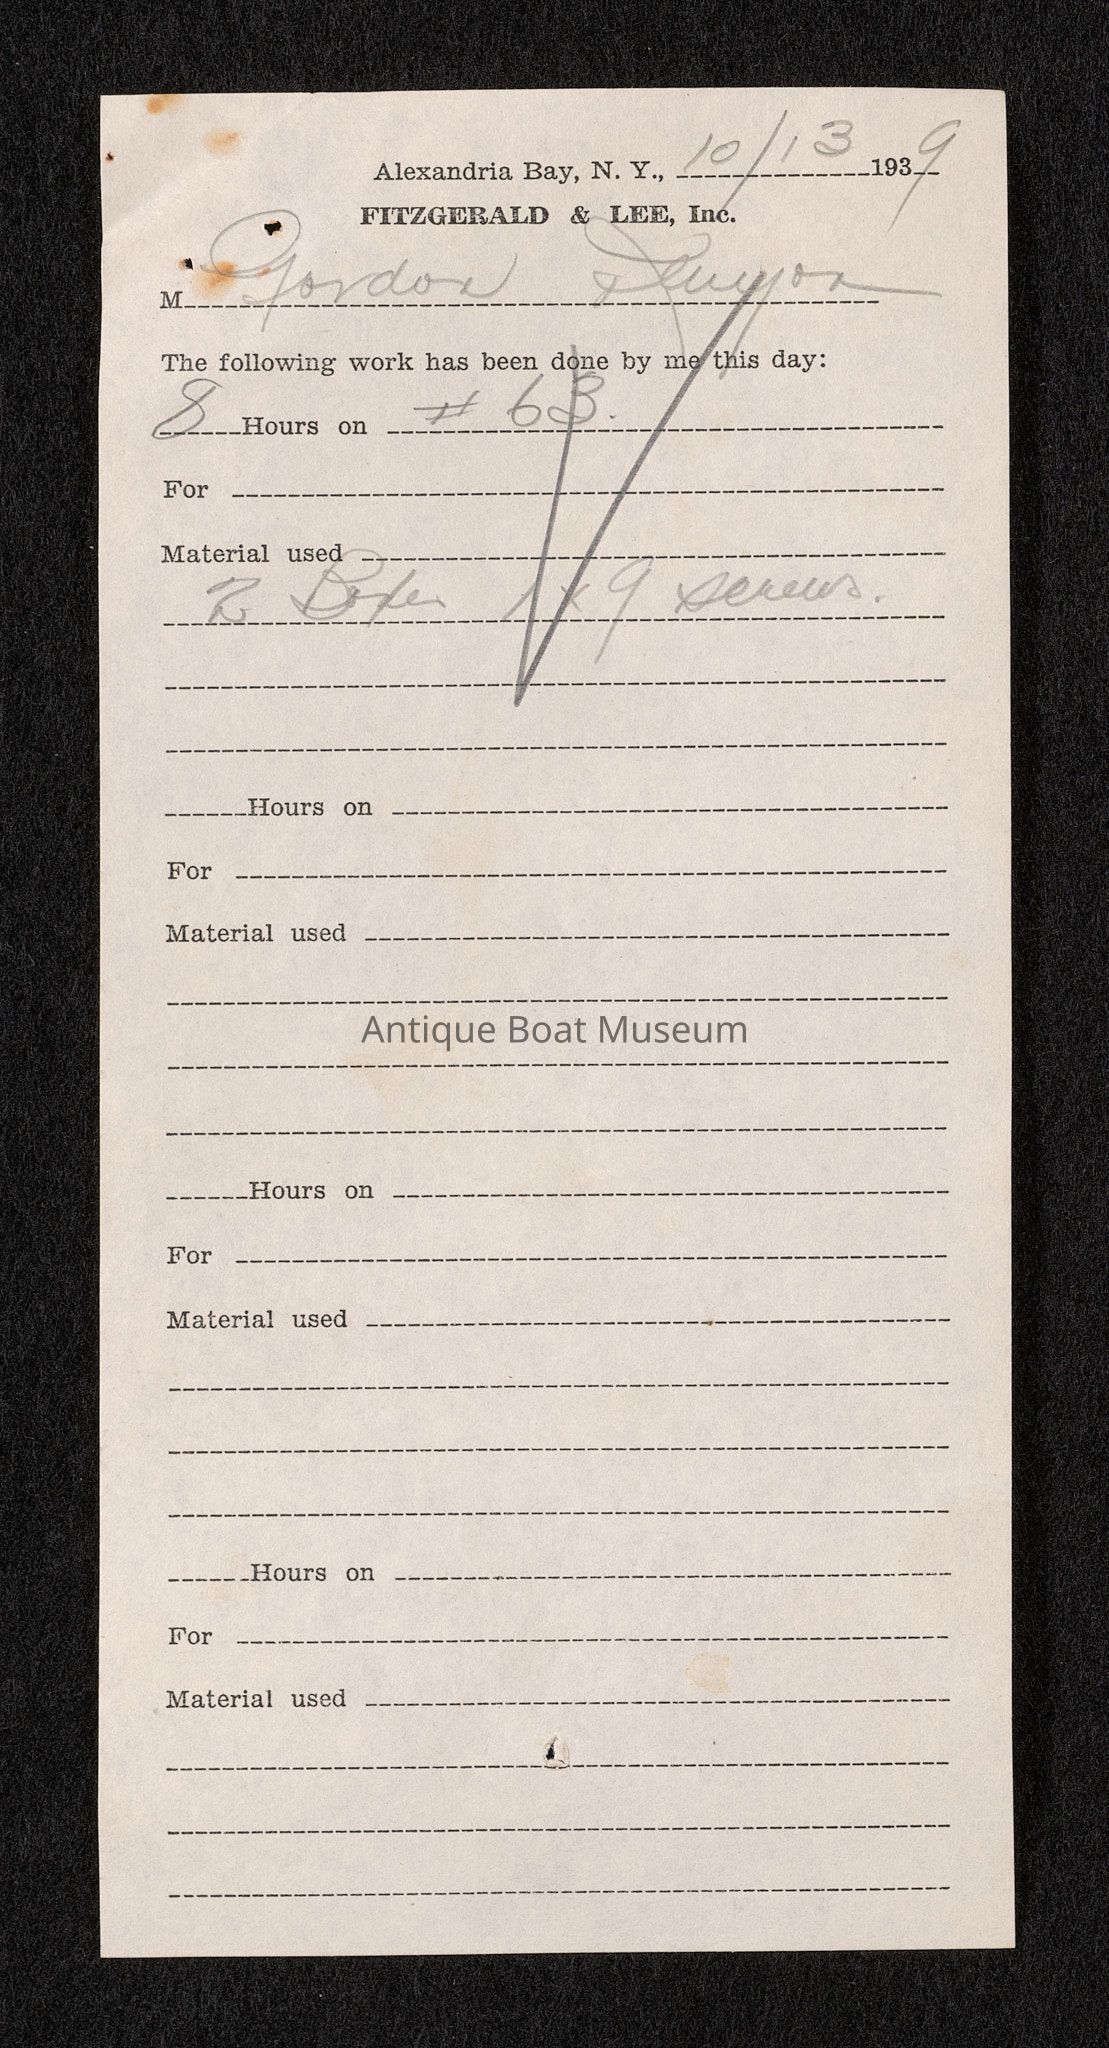 Alexandria Bay, N. Y., 10/13 1939
FITZGERALD & LEE, Inc.
M Gordon
The following work has been done by me this day:
8 Hours on # 63.
For
Material used
2 Boxes 1 x 9 screws.
Hours on
For
Material used
Antique Boat Museum
Hours on
For
Material used
Hours on
For
Material used